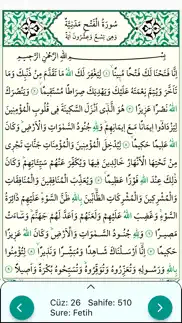 سُورَةُ الْفَتْحِ مَدَنِيَّةٌ
وَهِيَ تِسْعٌ وَعِشْرُونَ اٰيَةً
بِسْمِ اللّٰهِ الرَّحْمٰنِ الرَّحِيمِ
اِنَّا فَتَحْنَا لَكَ فَتْحًا مُبِينًا ﴿١﴾ لِيَغْفِرَ لَكَ اللّٰهُ مَا تَقَدَّمَ مِنْ ذَنْبِكَ وَمَا
تَاَخَّرَ وَيُتِمَّ نِعْمَتَهُ عَلَيْكَ وَيَهْدِيَكَ صِرَاطًا مُسْتَقِيمًا ﴿٢﴾ وَيَنْصُرَكَ
اللّٰهُ نَصْرًا عَزِيزًا ﴿٣﴾ هُوَ الَّذِي اَنْزَلَ السَّكِينَةَ فِي قُلُوبِ الْمُؤْمِنِينَ
لِيَزْدَادُوا اِيمَانًا مَعَ اِيمَانِهِمْ وَلِلّٰهِ جُنُودُ السَّمٰوَاتِ وَالْاَرْضِ وَكَانَ اللّٰهُ
عَلِيمًا حَكِيمًا ﴿٤﴾ لِيُدْخِلَ الْمُؤْمِنِينَ وَالْمُؤْمِنَاتِ جَنَّاتٍ تَجْرِي
مِنْ تَحْتِهَا الْاَنْهَارُ خَالِدِينَ فِيهَا وَيُكَفِّرَ عَنْهُمْ سَيِّـَٔاتِهِمْ وَكَانَ
ذٰلِكَ عِنْدَ اللّٰهِ فَوْزًا عَظِيمًا ﴿٥﴾ وَيُعَذِّبَ الْمُنَافِقِينَ وَالْمُنَافِقَاتِ
وَالْمُشْرِكِينَ وَالْمُشْرِكَاتِ الظَّانِّينَ بِاللّٰهِ ظَنَّ السَّوْءِ عَلَيْهِمْ دَائِرَةُ
السَّوْءِ وَغَضِبَ اللّٰهُ عَلَيْهِمْ وَلَعَنَهُمْ وَاَعَدَّ لَهُمْ جَهَنَّمَ وَسَاءَتْ
مَصِيرًا ﴿٦﴾ وَلِلّٰهِ جُنُودُ السَّمٰوَاتِ وَالْاَرْضِ وَكَانَ اللّٰهُ عَزِيزًا
حَكِيمًا ﴿٧﴾ اِنَّا اَرْسَلْنَاكَ شَاهِدًا وَمُبَشِّرًا وَنَذِيرًا ﴿٨﴾ لِتُؤْمِنُوا
بِاللّٰهِ وَرَسُولِهِ وَتُعَزِّرُوهُ وَتُوَقِّرُوهُ وَتُسَبِّحُوهُ بُكْرَةً وَاَصِيلًا ﴿٩﴾
Cüz: 26 Sahife: 510
Sure: Fetih